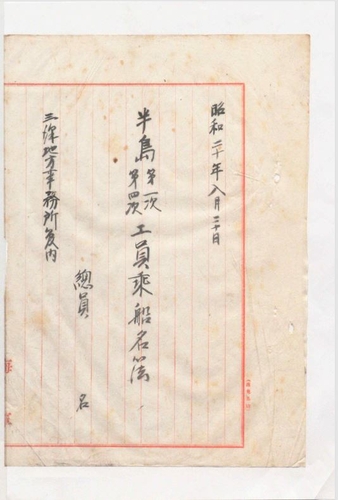 昭和二十年八月二十日
半島 第一次 第四次 工員乗船名簿
總員 名
三深地方事務所管内
海